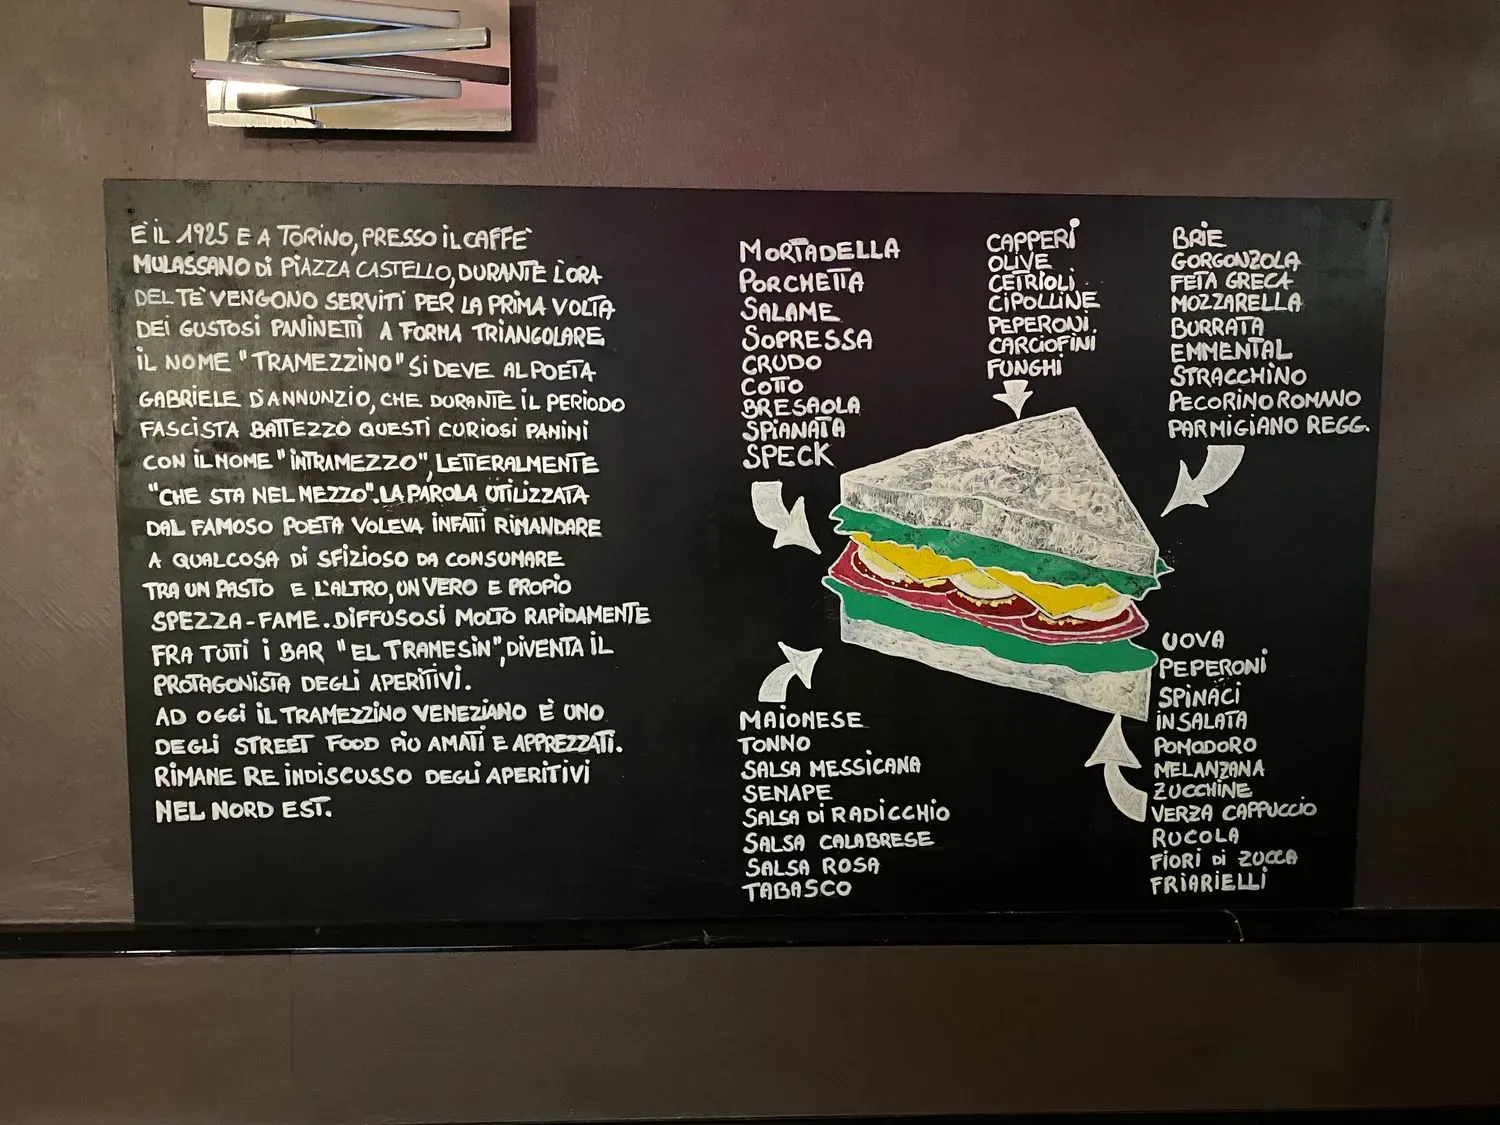 È IL 1925 E A TORINO, PRESSO IL CAFFÈ
MULASSANO DI PIAZZA CASTELLO, DURANTE L'ORA
DEL TÈ VENGONO SERVITI PER LA PRIMA VOLTA
DEI GUSTOSI PANINETTI A FORMA TRIANGOLARE
IL NOME "TRAMEZZINO" SI DEVE AL POETA
GABRIELE D'ANNUNZIO, CHE DURANTE IL PERIODO
FASCISTA BATTEZZÒ QUESTI CURIOSI PANINI
CON IL NOME "INTRAMEZZO", LETTERALMENTE
"CHE STA NEL MEZZO". LA PAROLA UTILIZZATA
DAL FAMOSO POETA VOLEVA INFATTI RIMANDARE
A QUALCOSA DI SFIZIOSO DA CONSUMARE
TRA UN PASTO E L'ALTRO, UN VERO E PROPIO
SPEZZA-FAME. DIFFUSOSI MOLTO RAPIDAMENTE
FRA TUTTI I BAR "EL TRAMESIN", DIVENTA IL
PROTAGONISTA DEGLI APERITIVI.
AD OGGI IL TRAMEZZINO VENEZIANO È UNO
DEGLI STREET FOOD PIÙ AMATI E APPREZZATI.
RIMANE RE INDISCUSSO DEGLI APERITIVI
NEL NORD EST.
MORTADELLA
PORCHETTA
SALAME
SOPRESSA
CRUDO
COTTO
BRESAOLA
SPIANATA
SPECK
CAPPERI
OLIVE
CETRIOLI
CIPOLLINE
PEPERONI.
CARCIOFINI
FUNGHI
BRIE
GORGONZOLA
FETA GRECA
MOZZARELLA
BURRATA
EMMENTAL
STRACCHINO
PECORINO ROMANO
PARMIGIANO REGG.
MAIONESE
TONNO
SALSA MESSICANA
SENAPE
SALSA DI RADICCHIO
SALSA CALABRESE
SALSA ROSA
TABASCO
UOVA
PEPERONI
SPINACI
INSALATA
POMODORO
MELANZANA
ZUCCHINE
VERZA CAPPUCCIO
RUCOLA
FIORI DI ZUCCA
FRIARIELLI